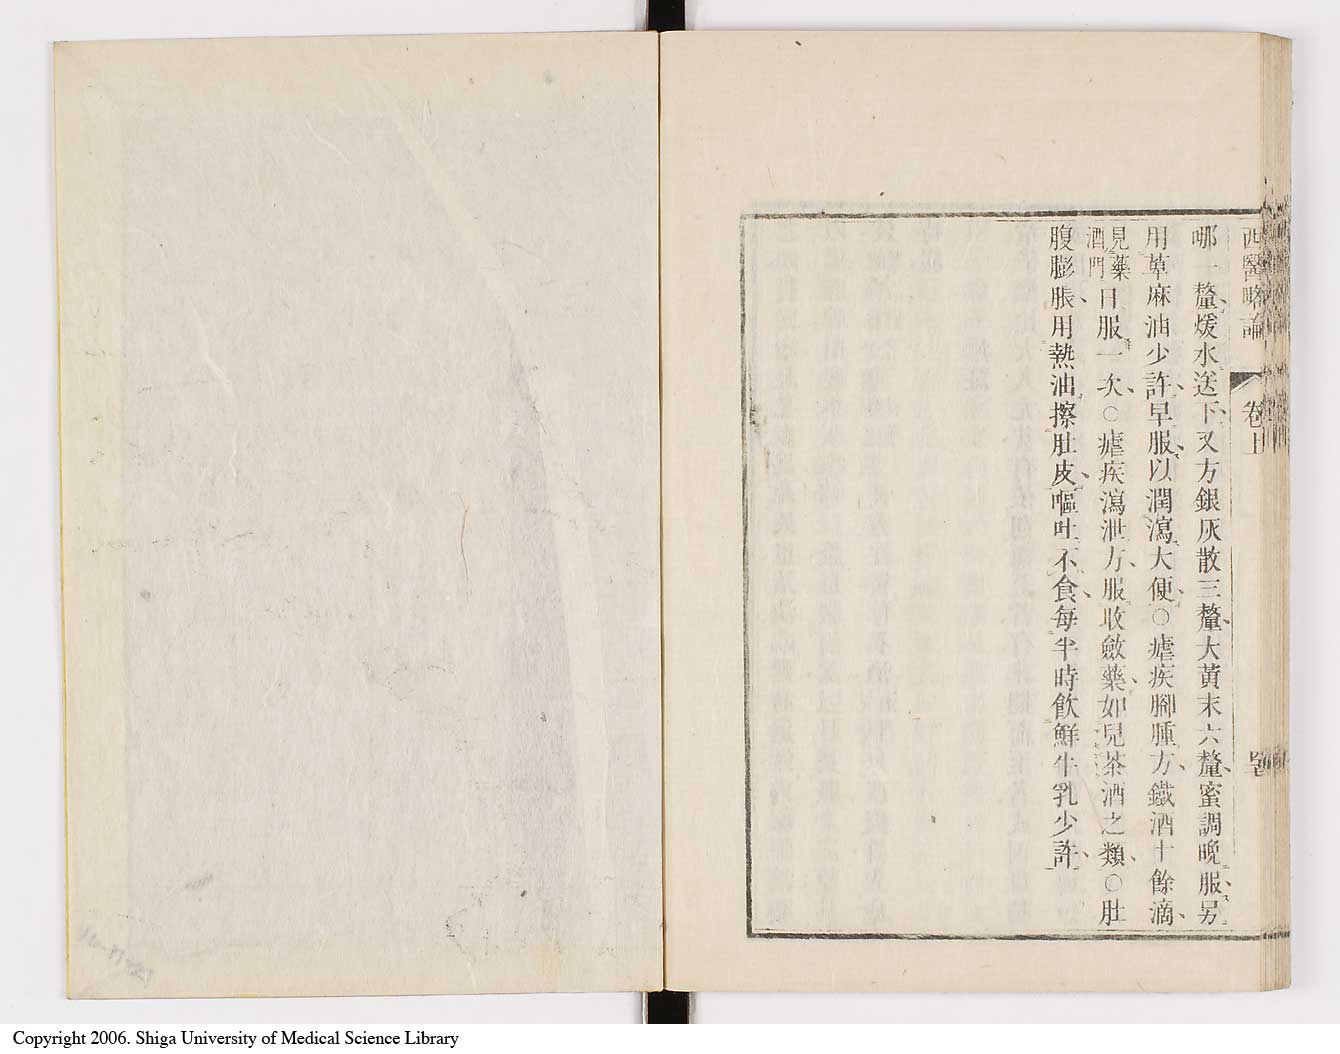 西醫略論 卷上
哪一釐煖水送下又方銀灰散三釐大黃末六釐蜜調晚服另
用萆麻油少許早服以潤瀉大便○瘧疾腳腫方鐵酒十餘滴
見藥酒門日服一次○瘧疾瀉泄方服收斂藥如兒茶酒之類○肚
腹膨脹用熱油擦肚皮嘔吐不食每半時飲鮮牛乳少許
Copyright 2006. Shiga University of Medical Science Library